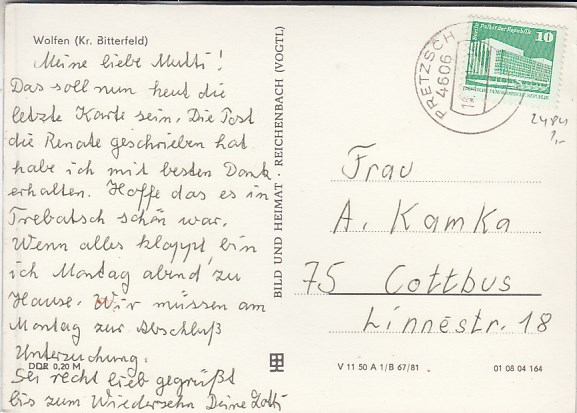 Wolfen (Kr. Bitterfeld)
Meine liebe Mutti!
Das soll nun heut die
letzte Karte sein. Die Post
die Renate geschrieben hat
habe ich mit besten Dank
erhalten. Hoffe das es in
Trebatsch schön war.
Wenn alles klappt bin
ich Montag abend zu
Hause. Wir müssen am
Montag zur Abschluß
Untersuchung.
DDR 0,20 M
Sei recht lieb gegrüßt
bis zum Wiedersehn Deine Lotti
BILD UND HEIMAT · REICHENBACH (VOGTL)
PRETZSCH
4606
10
Palast der Republik
2484
1,-
Frau
A. Kamka
75 Cottbus
Linnéstr. 18
V 11 50 A 1/B 67/81
01 08 04 164